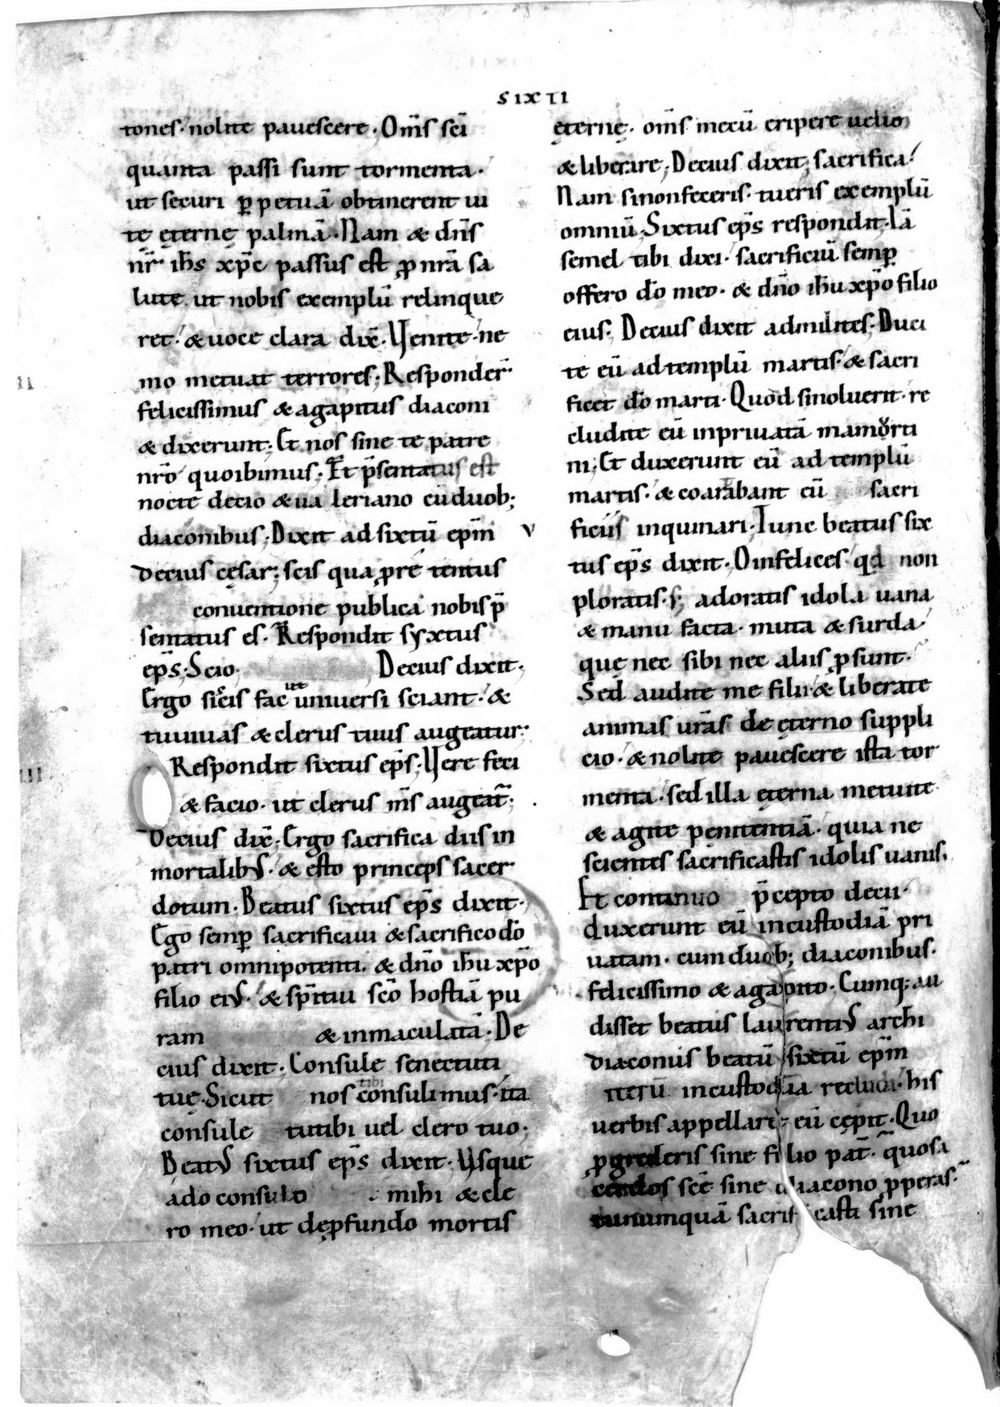 SIXTI
tones· nolite pauescere · Om̄s sc̄i
quanta passi sunt tormenta·
ut securi ꝑpetuā obtinerent ui
tę ęternę palmā · Nam & dn̄s
nr̄ ih̄s xp̄c passus est ꝓ nr̄a sa
lute ut nobis exemplū relinque
ret· & uoce clara dix̄· Uenite· ne
mo metuat terrores; Responder̄
felicissimus & agapitus diaconi
& dixerunt; Et nos sine te patre
nr̄o quo ibimus; Et p̄sentatus est
nocte decio & ualeriano cū duob;
diaconibus; Dixit ad sixtū ep̄m
decius cęsar; scis qua ꝓpre tentus
conuentione publica nobis p̄
sentatus es· Respondit syxtus
ep̄s; Scio· Decius dixit·
Ergo si scis fac ut uniuersi sciant· &
tu uiuas & clerus tuus augeatur·
Respondit sixtus ep̄s; Uere feci
& facio· ut clerus m̄s augeat̄;
Decius dix̄· Ergo sacrifica diis in
mortalibꝰ· & esto princeps sacer
dotum· Beatus sixtus ep̄s dixit·
Ego semꝑ sacrificaui & sacrifico dō
patri omnipotenti· & dn̄o ih̄u xp̄o
filio eiꝰ· & sp̄ritui sc̄o hostiā pu
ram & inmaculatā· De
cius dixit· Consule senectuti
tuę· Sicut nos tibi consulimus· ita
consule tu tibi uel clero tuo·
Beatꝰ sixtus ep̄s dixit· Usque
ado consulo mihi & cle
ro meo· ut de ꝓfundo mortis
ęternę· om̄s mecū eripere uelio
& liberare; Decius dixit; sacrifica·
Nam si non feceris· tu eris exemplū
omniū· Sixtus ep̄s respondit· Iā
semel tibi dixi· sacrificiū semꝑ
offero dō meo· & dn̄o ih̄u xp̄o filio
eius; Decius dixit ad milites; Duci
te eū ad templū martis· & sacri
ficet dō marti· Quod si noluerit· re
cludite eū in priuatā mamorti
ni; Et duxerunt eū ad templū
martis· & coartabant eū sacri
ficiis inquinari· Tunc beatus six
tus ep̄s dixit· O infelices· qd non
ploratis· s; adoratis idola uana
& manu facta· muta & surda·
que nec sibi nec aliis ꝓsunt·
Sed audite me filii & liberate
animas ur̄as de ęterno suppli
cio· & nolite pauescere ista tor
menta· sed illa ęterna metuite
& agite penitentiā· quia ne
scientes sacrificastis idolis uanis,
Et continuo p̄cepto decii·
duxerunt eū in custodiā pri
uatam· cum duob; diaconibus·
felicissimo & agapito· Cumq; au
disset beatus laurentiꝰ archi
diaconus beatū sixtū ep̄m
iterū in custodia recludi· his
uerbis appellare eū cępit· Quo
ꝓgrederis sine filio pat̄· quo sa
cerdos sc̄e sine diacono ꝓperas·
tu numquā sacrificasti sine